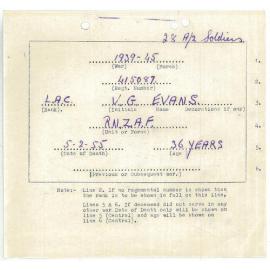 28 A/2 Soldiers
1939-45 1.
(War) (Force)
415087 2.
(Regt. Number)
LAC. V. G. EVANS. 3.
(Rank). (Initials Name Decorations if any)
R.N.Z.A.F. 4.
(Unit or Force)
5-2-55 36 YEARS 5.
(Date of Death) (Age)
6.
(Previous or Subsequent War.)
Note:- Line 2. If no regimental number is shown then
the rank is to be shown in full on this line.
Lines 5 & 6. If deceased did not serve in any
other war Date of Death only will be shown on
line 5 (Central) and age will be shown on
line 6 (Central).